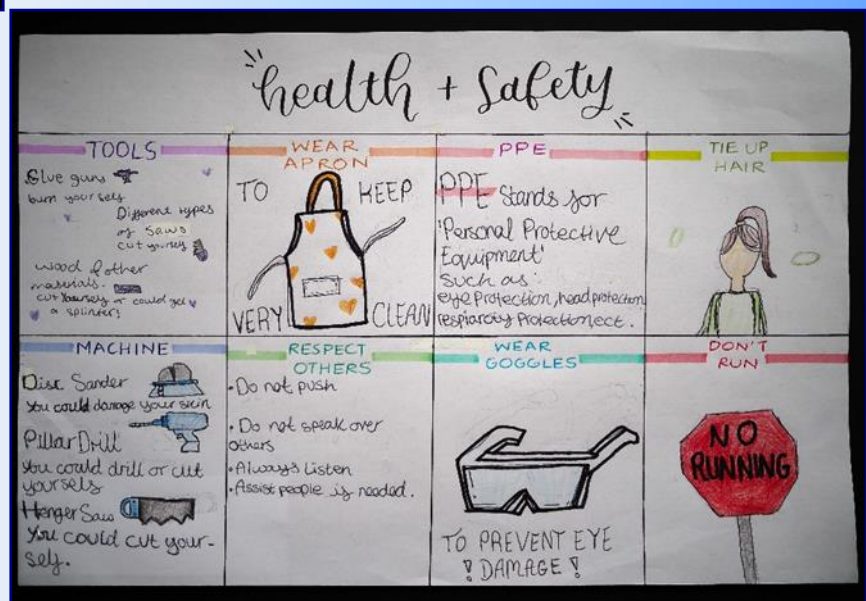 health + Safety
TOOLS
Glue guns
burn yourself
Different types
of Saws
cut yourself
wood & other
materials.
cut yourself or could get
a splinter!
WEAR
APRON
TO KEEP
VERY CLEAN
PPE
PPE Stands for
'Personal Protective
Equipment'
Such as:
eye Protection, head protection
respiaroty Protection ect.
TIE UP
HAIR
MACHINE
Disc Sander
You could damage your skin
Pillar Drill
you could drill or cut
yourself
Henger Saw
You could cut your-
self.
RESPECT
OTHERS
•Do not push
•Do not speak over
others
•Always Listen
•Assist people is needed.
WEAR
GOGGLES
TO PREVENT EYE
! DAMAGE !
DON'T
RUN
NO
RUNNING